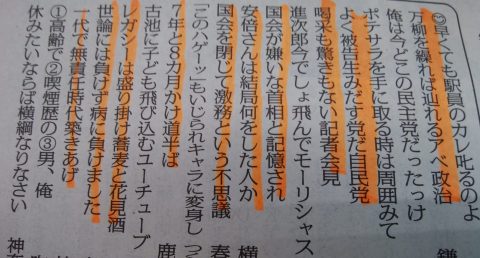 ㋲早くても駅員のカレ叱るのよ
鎌
万柳を繰れば辿れるアベ政治
俺は今どこの民主党だったっけ
ポテサラを手に取る時は周囲みて
よく被告生みだす党だ自民党
喝采も驚きもない記者会見
進次郎今でしょ飛んでモーリシャス
国会が嫌いな首相と記憶され
安倍さんは結局何をした人か
横
国会を閉じて激務という不思議
春
「このハゲーッ」もいじられキャラに変身し
つ
7年と8カ月かけ道半ば
鹿
古池に子ども飛び込むユーチューブ
レガシーは盛り掛け蕎麦と花見酒
世論には負けず病に負けました
一代で無責任時代築きあげ
①高齢で②喫煙歴の③男、俺
休みたいならば横綱なりなさい
神奈